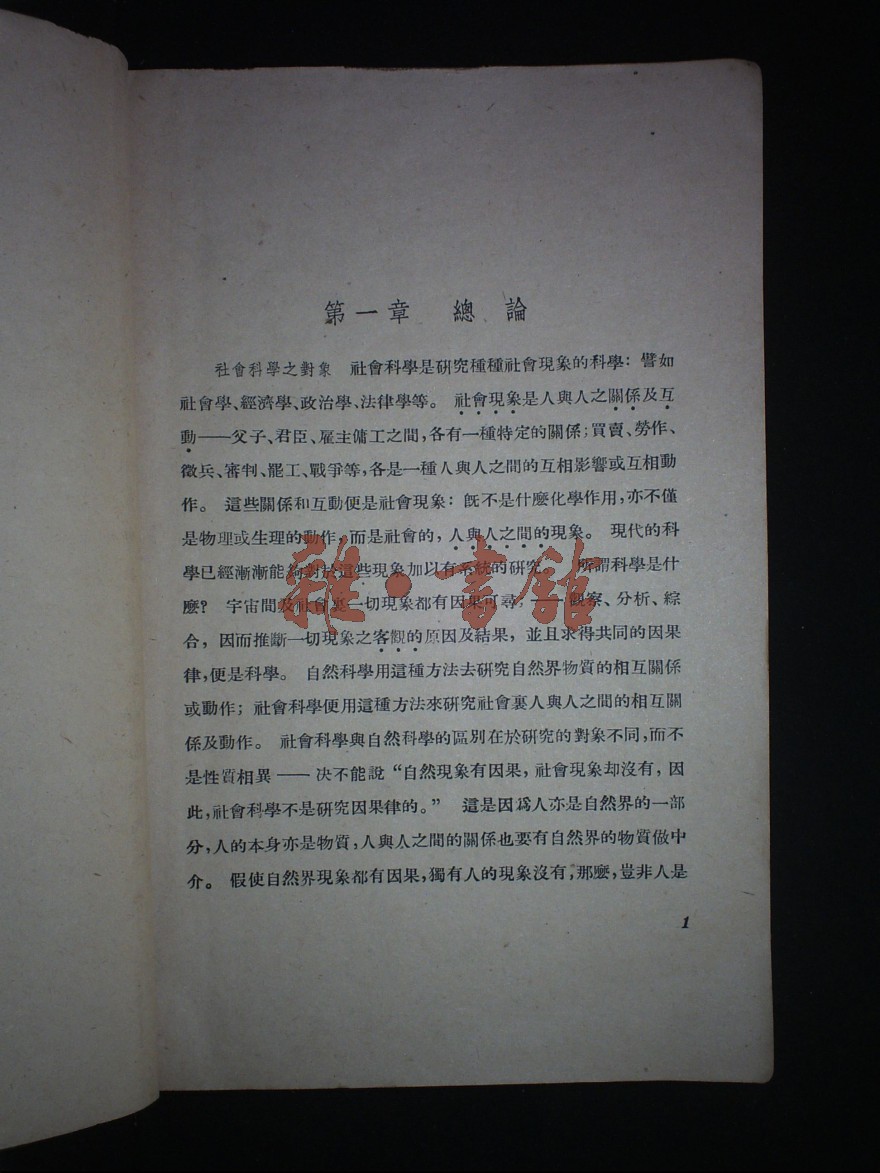 第一章 總論
社會科學之對象 社會科學是研究種種社會現象的科學：譬如
社會學、經濟學、政治學、法律學等。 社會現象是人與人之關係及互
動——父子、君臣、雇主傭工之間，各有一種特定的關係；買賣、勞作、
徵兵、審判、罷工、戰爭等，各是一種人與人之間的互相影響或互相動
作。 這些關係和互動便是社會現象：既不是什麼化學作用，亦不僅
是物理或生理的動作，而是社會的，人與人之間的現象。 現代的科
學已經漸漸能夠對於這些現象加以有系統的研究。 所謂科學是什
麼？ 宇宙間及社會裏一切現象都有因果可尋；——觀察、分析、綜
合，因而推斷一切現象之客觀的原因及結果，並且求得共同的因果
律，便是科學。 自然科學用這種方法去研究自然界物質的相互關係
或動作；社會科學便用這種方法來研究社會裏人與人之間的相互關
係及動作。 社會科學與自然科學的區別在於研究的對象不同，而不
是性質相異——决不能說“自然現象有因果，社會現象却沒有，因
此，社會科學不是研究因果律的。” 這是因爲人亦是自然界的一部
分，人的本身亦是物質，人與人之間的關係也要有自然界的物質做中
介。 假使自然界現象都有因果，獨有人的現象沒有，那麼，豈非人是
1
雜·書館